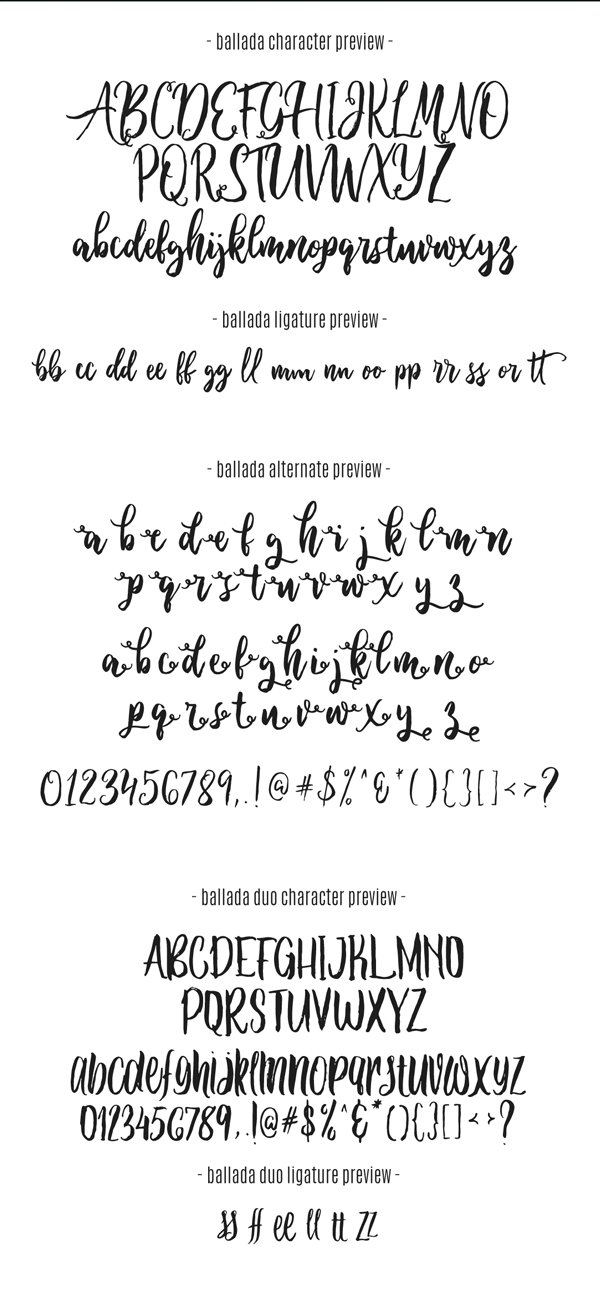 - ballada character preview -
ABCDEFGHIJKLMNO
PQRSTUVWXYZ
abcdefghijklmnopqrstuvwxyz
- ballada ligature preview -
bb cc dd ee ff gg ll mm nn oo pp rr ss or tt
- ballada alternate preview -
a b c d e f g h i j k l m n
p q r s t u v w x y z
a b c d e f g h i j k l m n o
p q r s t u v w x y z
0123456789,.!@#$%^&*(){}[]<>?
- ballada duo character preview -
ABCDEFGHIJKLMNO
PQRSTUVWXYZ
abcdefghijklmnopqrstuvwxyz
0123456789,.!@#$%^&*(){}[]<>?
- ballada duo ligature preview -
ss ff ee ll tt zz